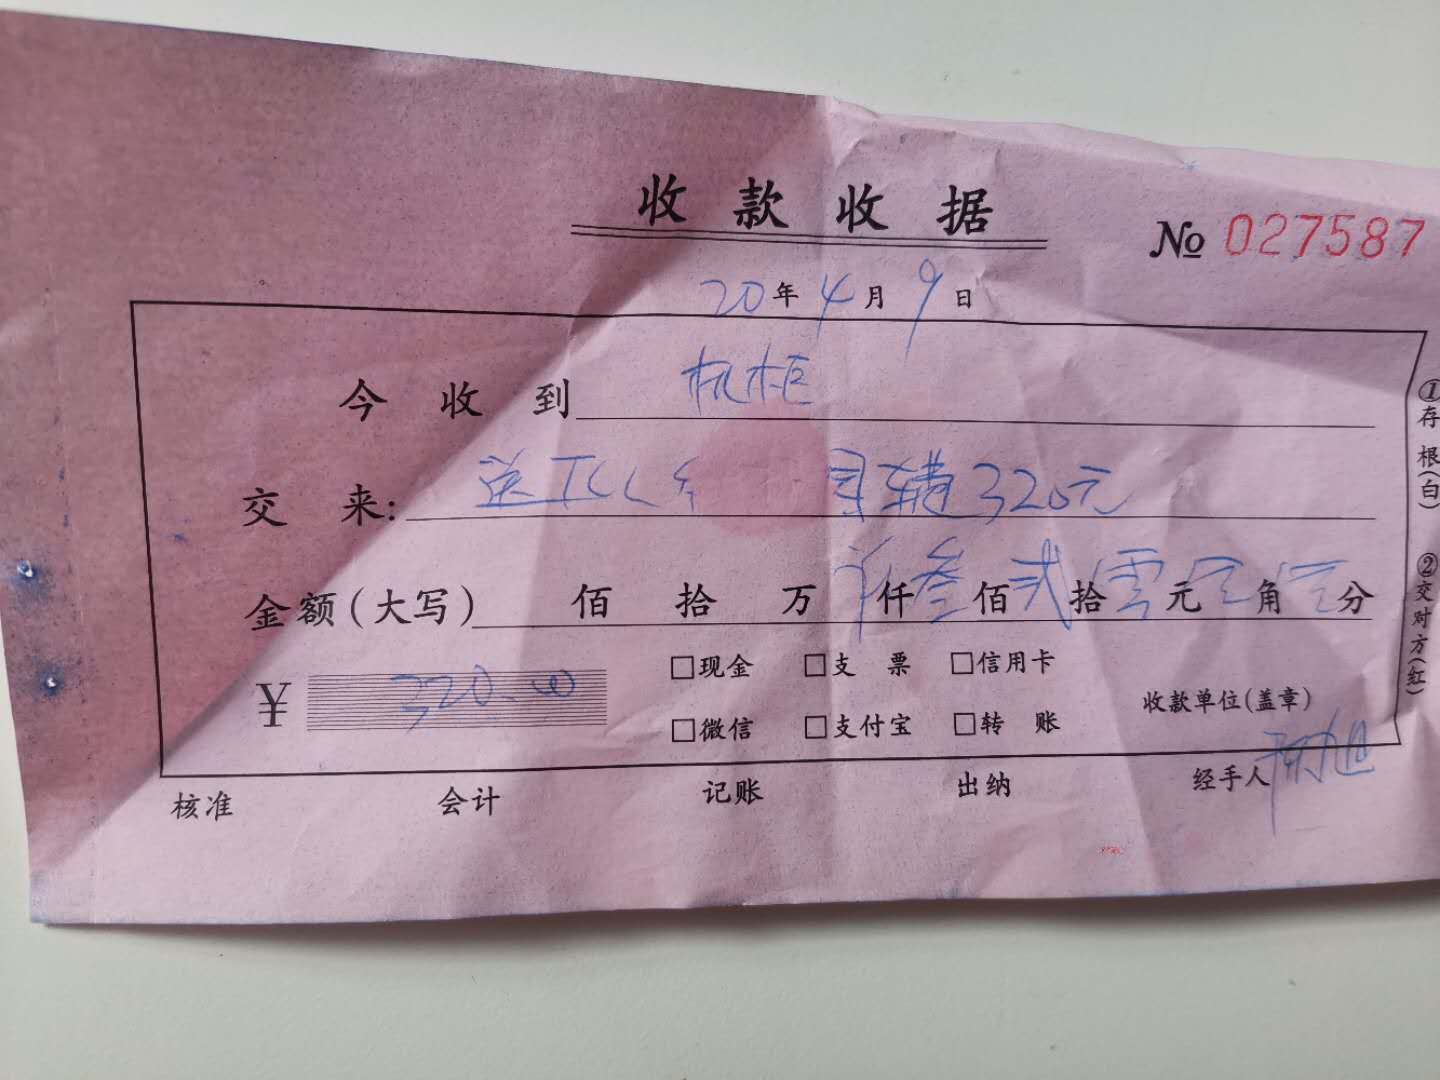 收款收据
№ 027587
20年4月9日
今收到 机柜
交来: 送 320元
金额(大写) 佰 拾 万 仟 叁 佰 贰 拾 零 元 零 角 零 分
¥ 320.00
□现金 □支票 □信用卡
□微信 □支付宝 □转账
收款单位(盖章)
核准 会计 记账 出纳 经手人
①存根(白) ②交对方(红)